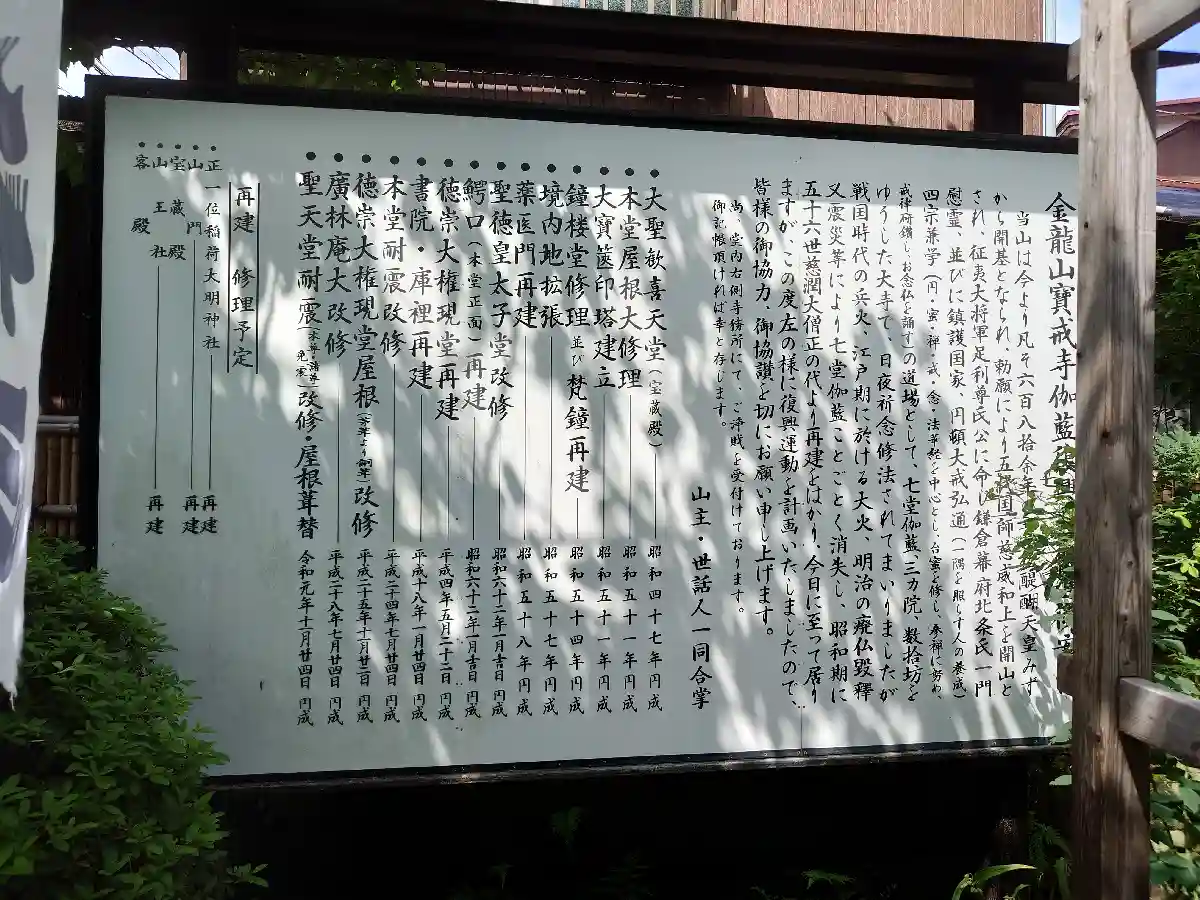 金龍山寶戒寺伽藍
当山は今より凡そ六百八拾余年 醍醐天皇みず
から開基となられ、勅願により五 国師慈威和上を開山と
され、征夷大将軍足利尊氏公に命じ鎌倉幕府北条氏一門
慰霊、並びに鎮護国家、円頓大戒弘通(一隅を照らす人の養成)
四宗兼学(円・密・禅・戒・念・法華経を中心とし、台密を修し、参禅に努め
戒律研鑽し、お念仏を誦す)の道場として、七堂伽藍、三カ院、数拾坊を
ゆうした大寺で、日夜祈念修法されてまいりましたが
戦国時代の兵火、江戸期に於ける大火、明治の廃仏毀釋
又震災等により七堂伽藍ことごとく消失し、昭和期に
五十六世慈潤大僧正の代より再建をはかり、今日に至って居り
ますが、この度左の様に復興運動を計画いたしましたので、
皆様の御協力、御協讃を切にお願い申し上げます。
尚、堂内右側寺務所にて、ご浄財を受付けております。
御記帳頂ければ幸と存します。
山主・世話人一同合掌
●大聖歓喜天堂(宝蔵殿) 昭和四十七年円成
●本堂屋根大修理 昭和五十一年円成
●大寳篋印塔建立 昭和五十一年円成
●鐘楼堂修理並び梵鐘再建 昭和五十四年円成
●境内地拡張 昭和五十七年円成
●薬医門再建 昭和五十八年円成
●聖徳皇太子堂改修 昭和六十二年一月吉日円成
●鰐口(本堂正面)再建 昭和六十二年一月吉日円成
●徳崇大権現堂再建 平成四年五月二十二日円成
●書院・庫裡再建 平成十八年一月吉日円成
●本堂耐震改修 平成二十四年七月廿四日円成
●徳崇大権現堂屋根改修 平成二十五年十二月廿二日円成
●廣林庵大改修 平成二十八年七月廿四日円成
●聖天堂耐震改修・屋根葺替 令和元年十一月廿四日円成
再建 修理予定
●正一位稲荷大明神社 再建
●山門 再建
●宝蔵殿
●山王社 再建
●客殿